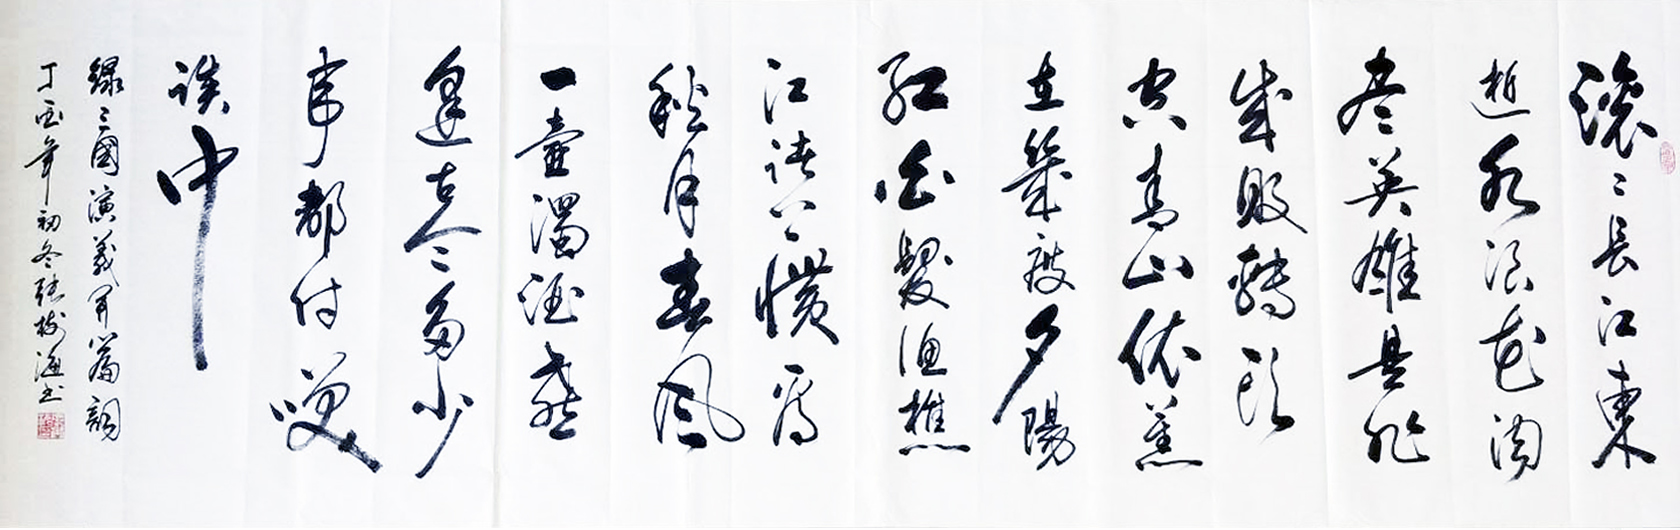 滚〻长江东
逝水浪花淘
尽英雄是非
成败转头
空青山依旧
在几度夕阳
红白发渔樵
江渚上惯看
秋月春风
一壶浊酒喜
逢古今多少
事都付笑
谈中
录三国演义开篇词
丁酉年初冬张树海书